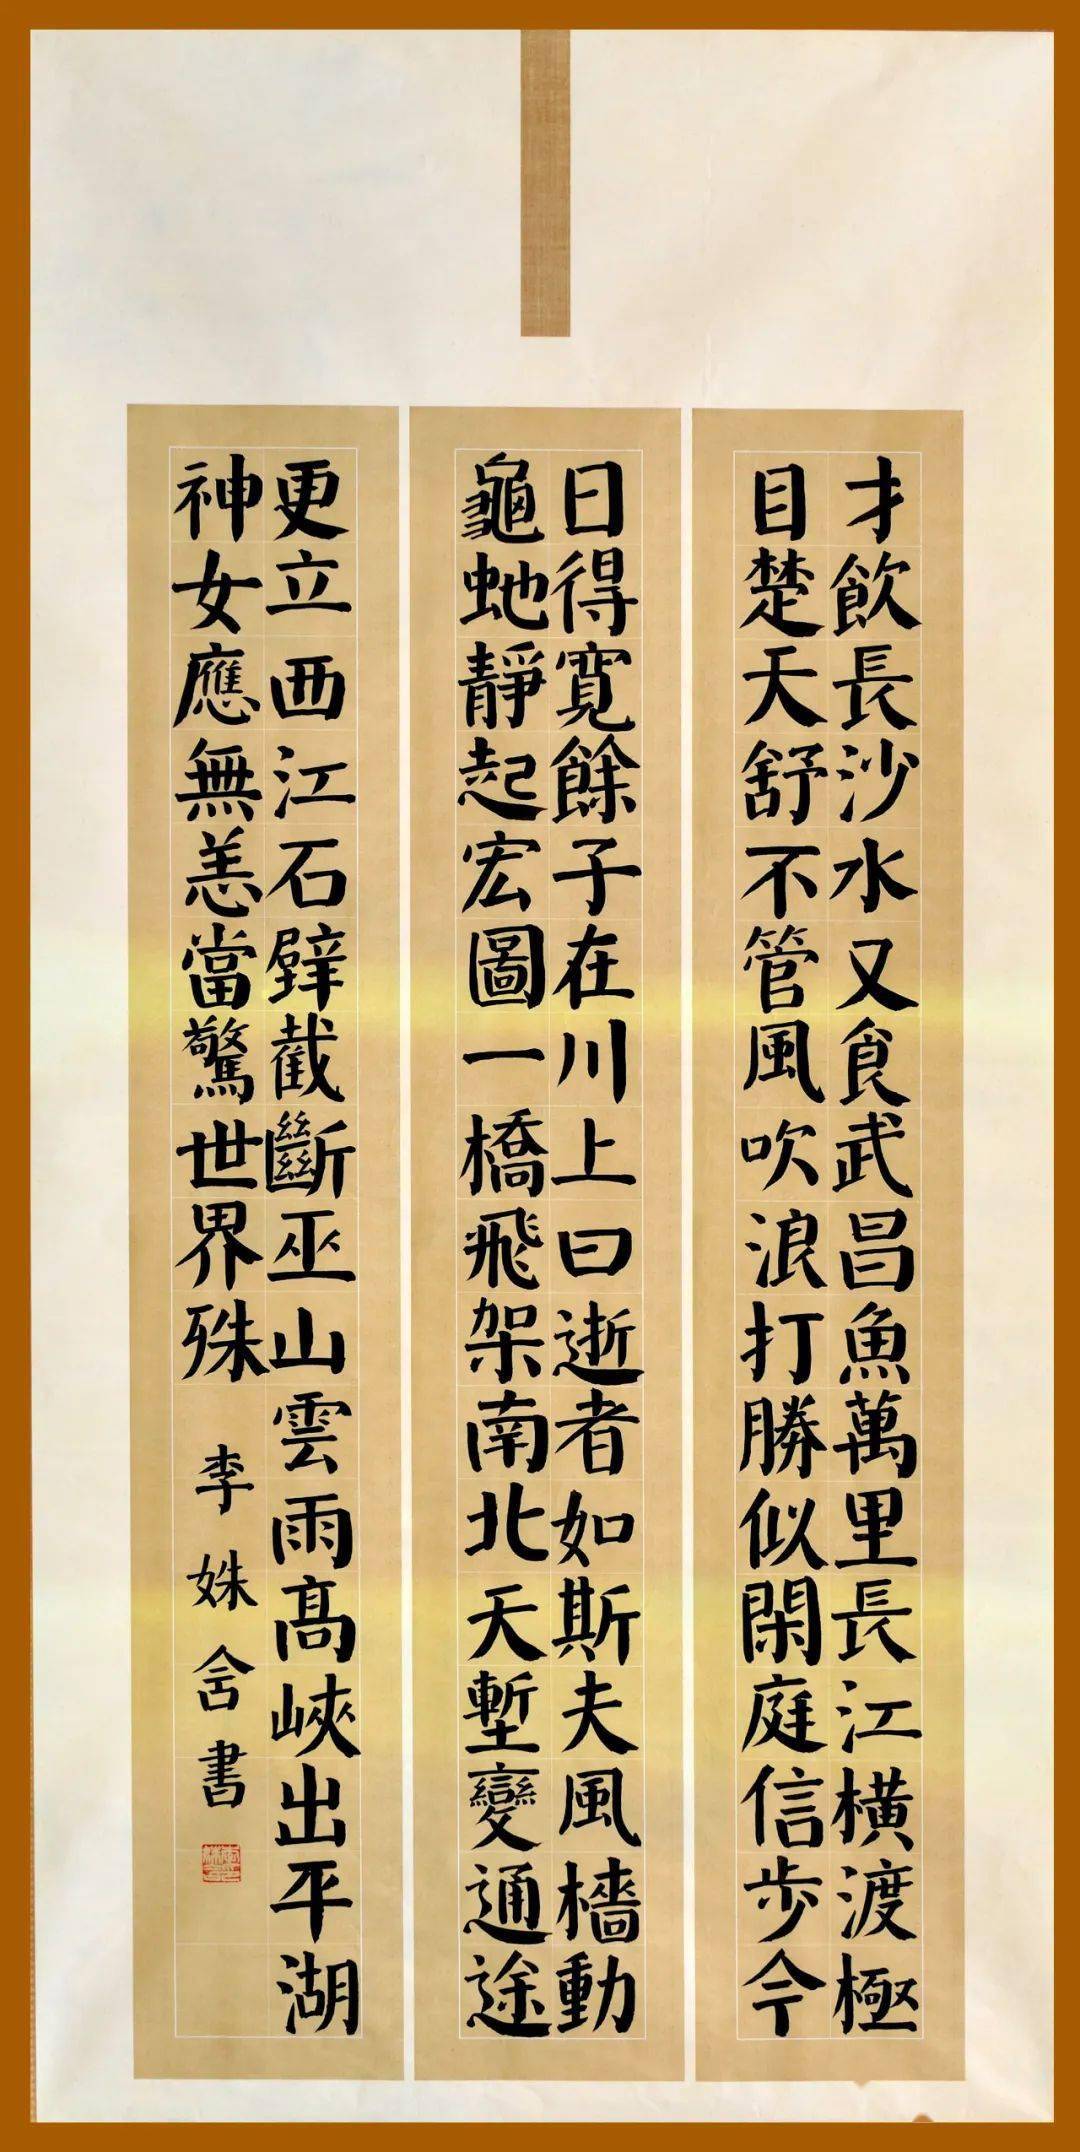 才飲長沙水又食武昌魚萬里長江橫渡極
目楚天舒不管風吹浪打勝似閑庭信步今
日得寬餘子在川上曰逝者如斯夫風檣動
龜虵靜起宏圖一橋飛架南北天塹變通途
更立西江石壁截斷巫山雲雨高峽出平湖
神女應無恙當驚世界殊
李姝含書